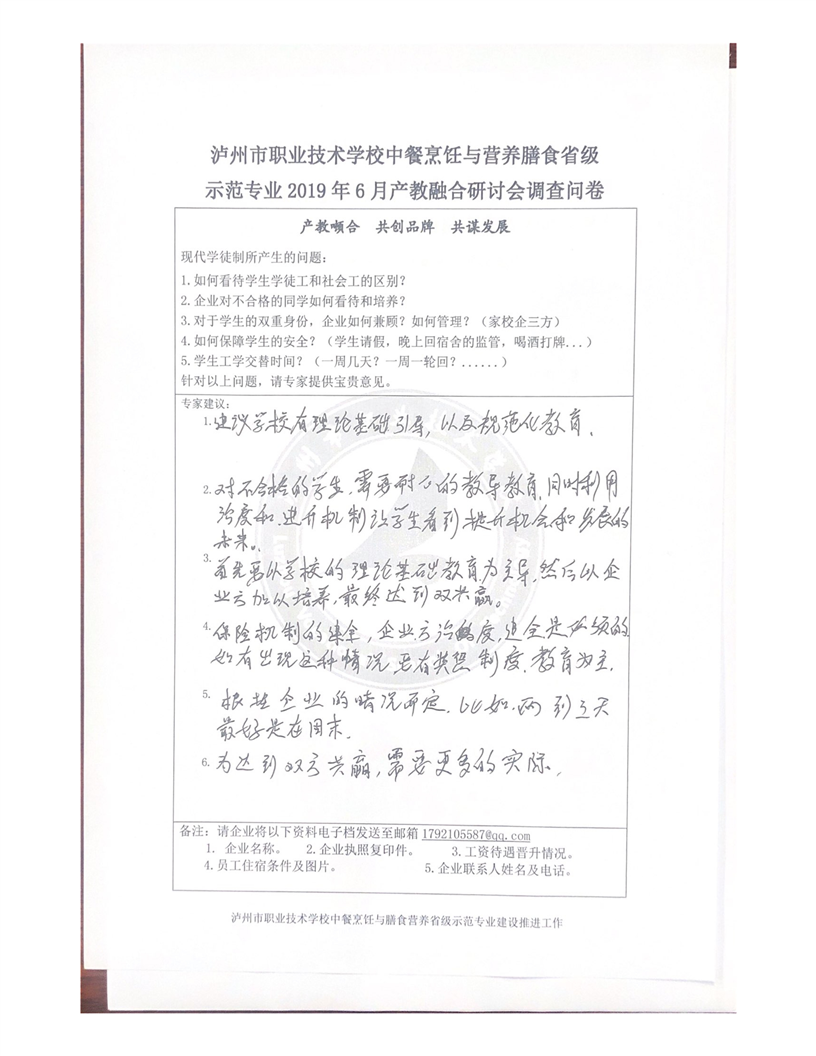 泸州市职业技术学校中餐烹饪与营养膳食省级
示范专业 2019 年 6 月产教融合研讨会调查问卷
产教融合 共创品牌 共谋发展
现代学徒制所产生的问题：
1.如何看待学生学徒工和社会工的区别？
2.企业对不合格的同学如何看待和培养？
3.对于学生的双重身份，企业如何兼顾？如何管理？（家校企三方）
4.如何保障学生的安全？（学生请假，晚上回宿舍的监管，喝酒打牌...）
5.学生工学交替时间？（一周几天？一周一轮回？......）
针对以上问题，请专家提供宝贵意见。
专家建议：
1.建议学校有理论基础引导，以及规范化教育.
2.对不合格的学生，需要耐心的教导教育，同时利用
制度和进升机制让学生看到提升机会和发展的
未来。
3.首先要以学校的理论基础教育为主导，然后以企
业方加以培养，最终达到双共赢。
4.保险机制的健全，企业方制度，健全是必须的
如有出现这种情况要有类似制度.教育为主.
5.根据企业的情况而定.比如.两到三天
最好是在周末.
6.为达到双方共赢，需要更多的实际.
备注：请企业将以下资料电子档发送至邮箱 1792105587@qq.com
1. 企业名称。 2.企业执照复印件。 3.工资待遇晋升情况。
4.员工住宿条件及图片。 5.企业联系人姓名及电话。
泸州市职业技术学校中餐烹饪与膳食营养省级示范专业建设推进工作